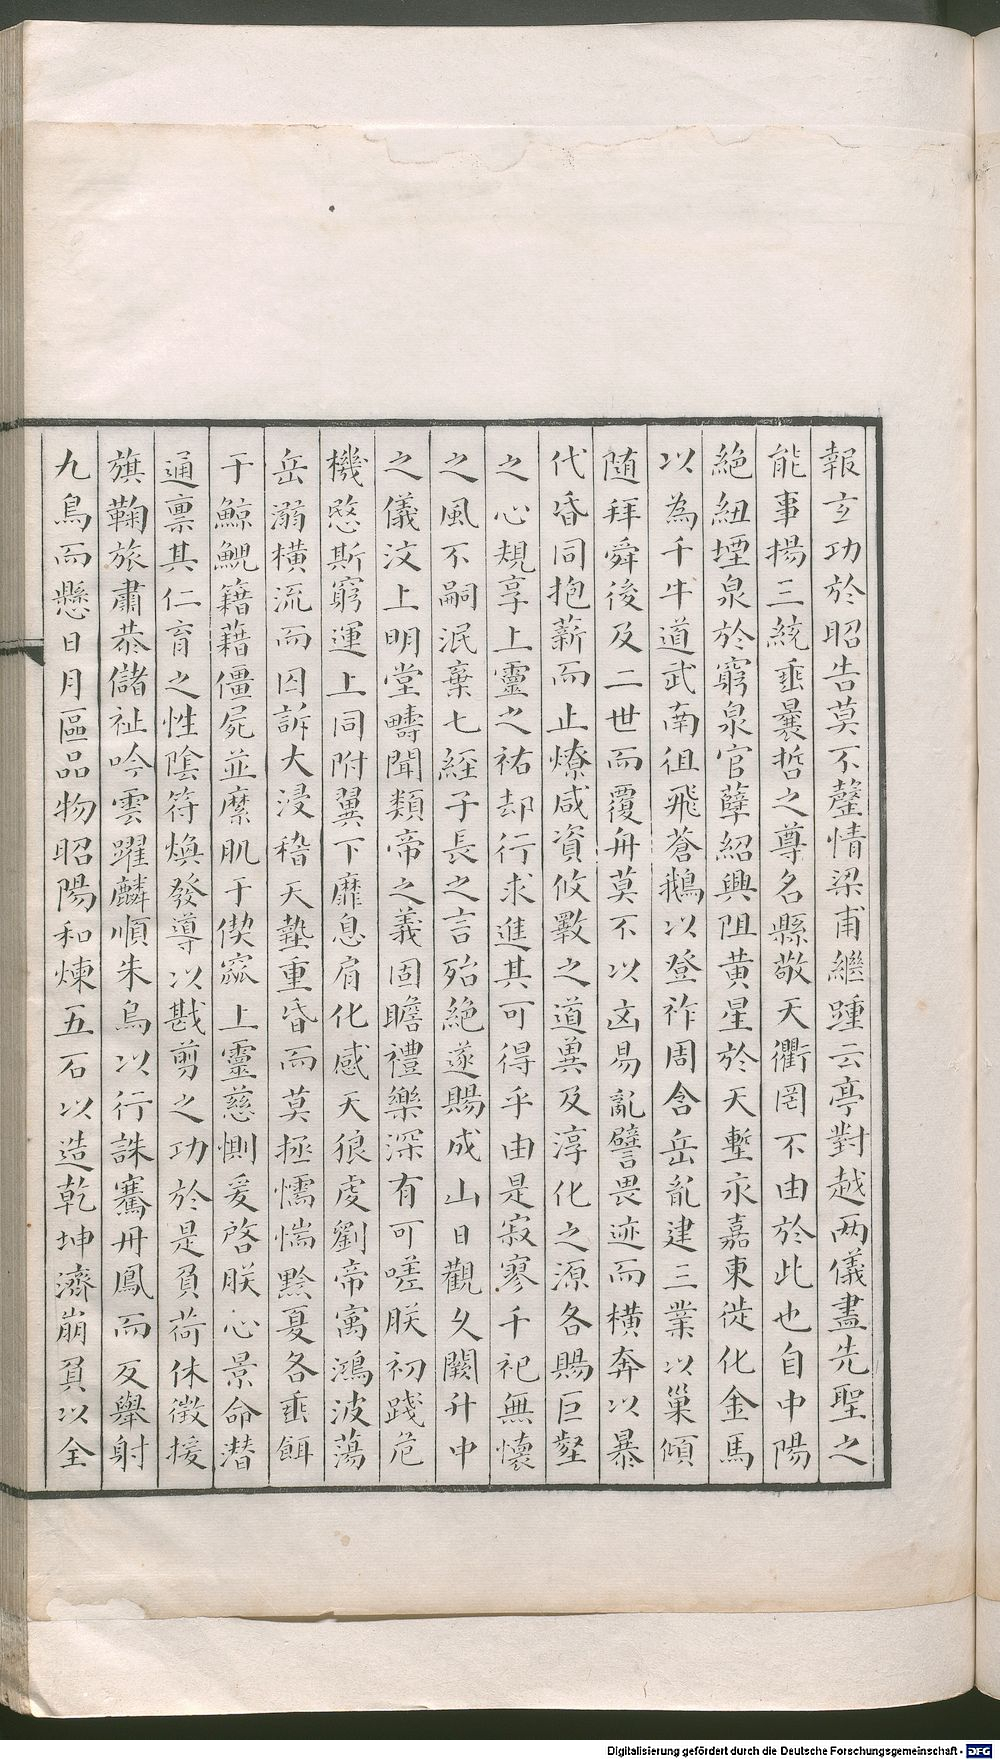 報玄功於昭告莫不罄情梁甫繼踵云亭對越兩儀盡先聖之
能事揚三統垂曩哲之尊名縣敬天衢罔不由於此也自中陽
絕紐堙泉於窮泉官孽紹興阻黃星於天塹永嘉東徙化金馬
以為千牛道武南徂飛蒼鵝以登祚周含岳亂建三業以巢傾
隨拜舜後及二世而覆舟莫不以凶易亂譬畏迹而橫奔以暴
代昏同抱薪而止燎咸資攸斁之道異及淳化之源各賜巨壑
之心規享上靈之祐却行求進其可得乎由是寂寥千祀無懷
之風不嗣泯棄七經子長之言殆絕遂賜成山日觀久闕升中
之儀汶上明堂疇聞類帝之義固瞻禮樂深有可嗟朕初踐危
機愍斯窮運上同附翼下靡息肩化感天狼虔劉帝寓鴻波蕩
岳溺橫流而囚訴大浸稽天墊重昏而莫拯懦惴黔夏各垂餌
于鯨鯢籍藉僵屍並縻肌于猰窳上靈慈惻爰啓朕心景命潛
通稟其仁育之性陰符煥發導以戡剪之功於是負荷休徵援
旗鞠旅肅恭儲祉吟雲躍麟順朱鳥以行誅騫丹鳳而反舉射
九烏而懸日月區品物昭陽和煉五石以造乾坤濟崩負以全
Digitalisierung gefördert durch die Deutsche Forschungsgemeinschaft - DFG